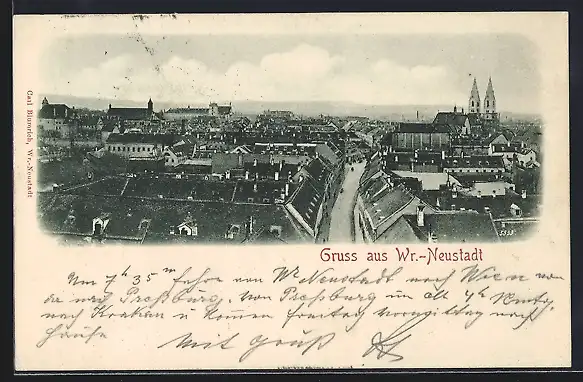 Carl Blumrich, Wr.-Neustadt
Gruss aus Wr.-Neustadt
Um 7h 35m fahre von Wr Neustadt nach Wien von
da nach Preßburg, von Preßburg um
nach Krakau u kommen freitag vormittag nach
Hause
Mit Gruß